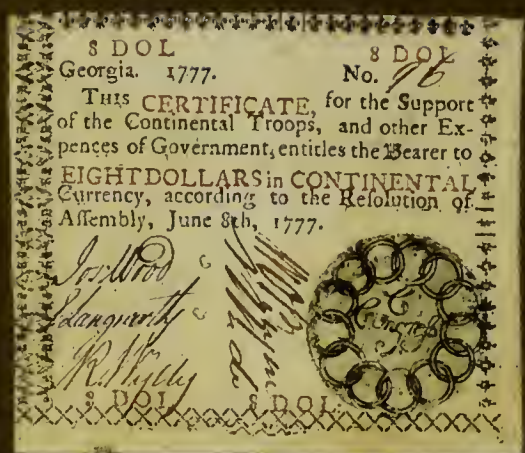 8 DOL 8 DOL
Georgia. 1777. No. 96
THIS CERTIFICATE, for the Support
of the Continental Troops, and other Ex-
pences of Government, entitles the Bearer to
EIGHT DOLLARS in CONTINENTAL
Currency, according to the Resolution of
Assembly, June 8th, 1777.
Jos. Wood
E Langworthy
R. Wylly
Congress
8 DOL 8 DOL